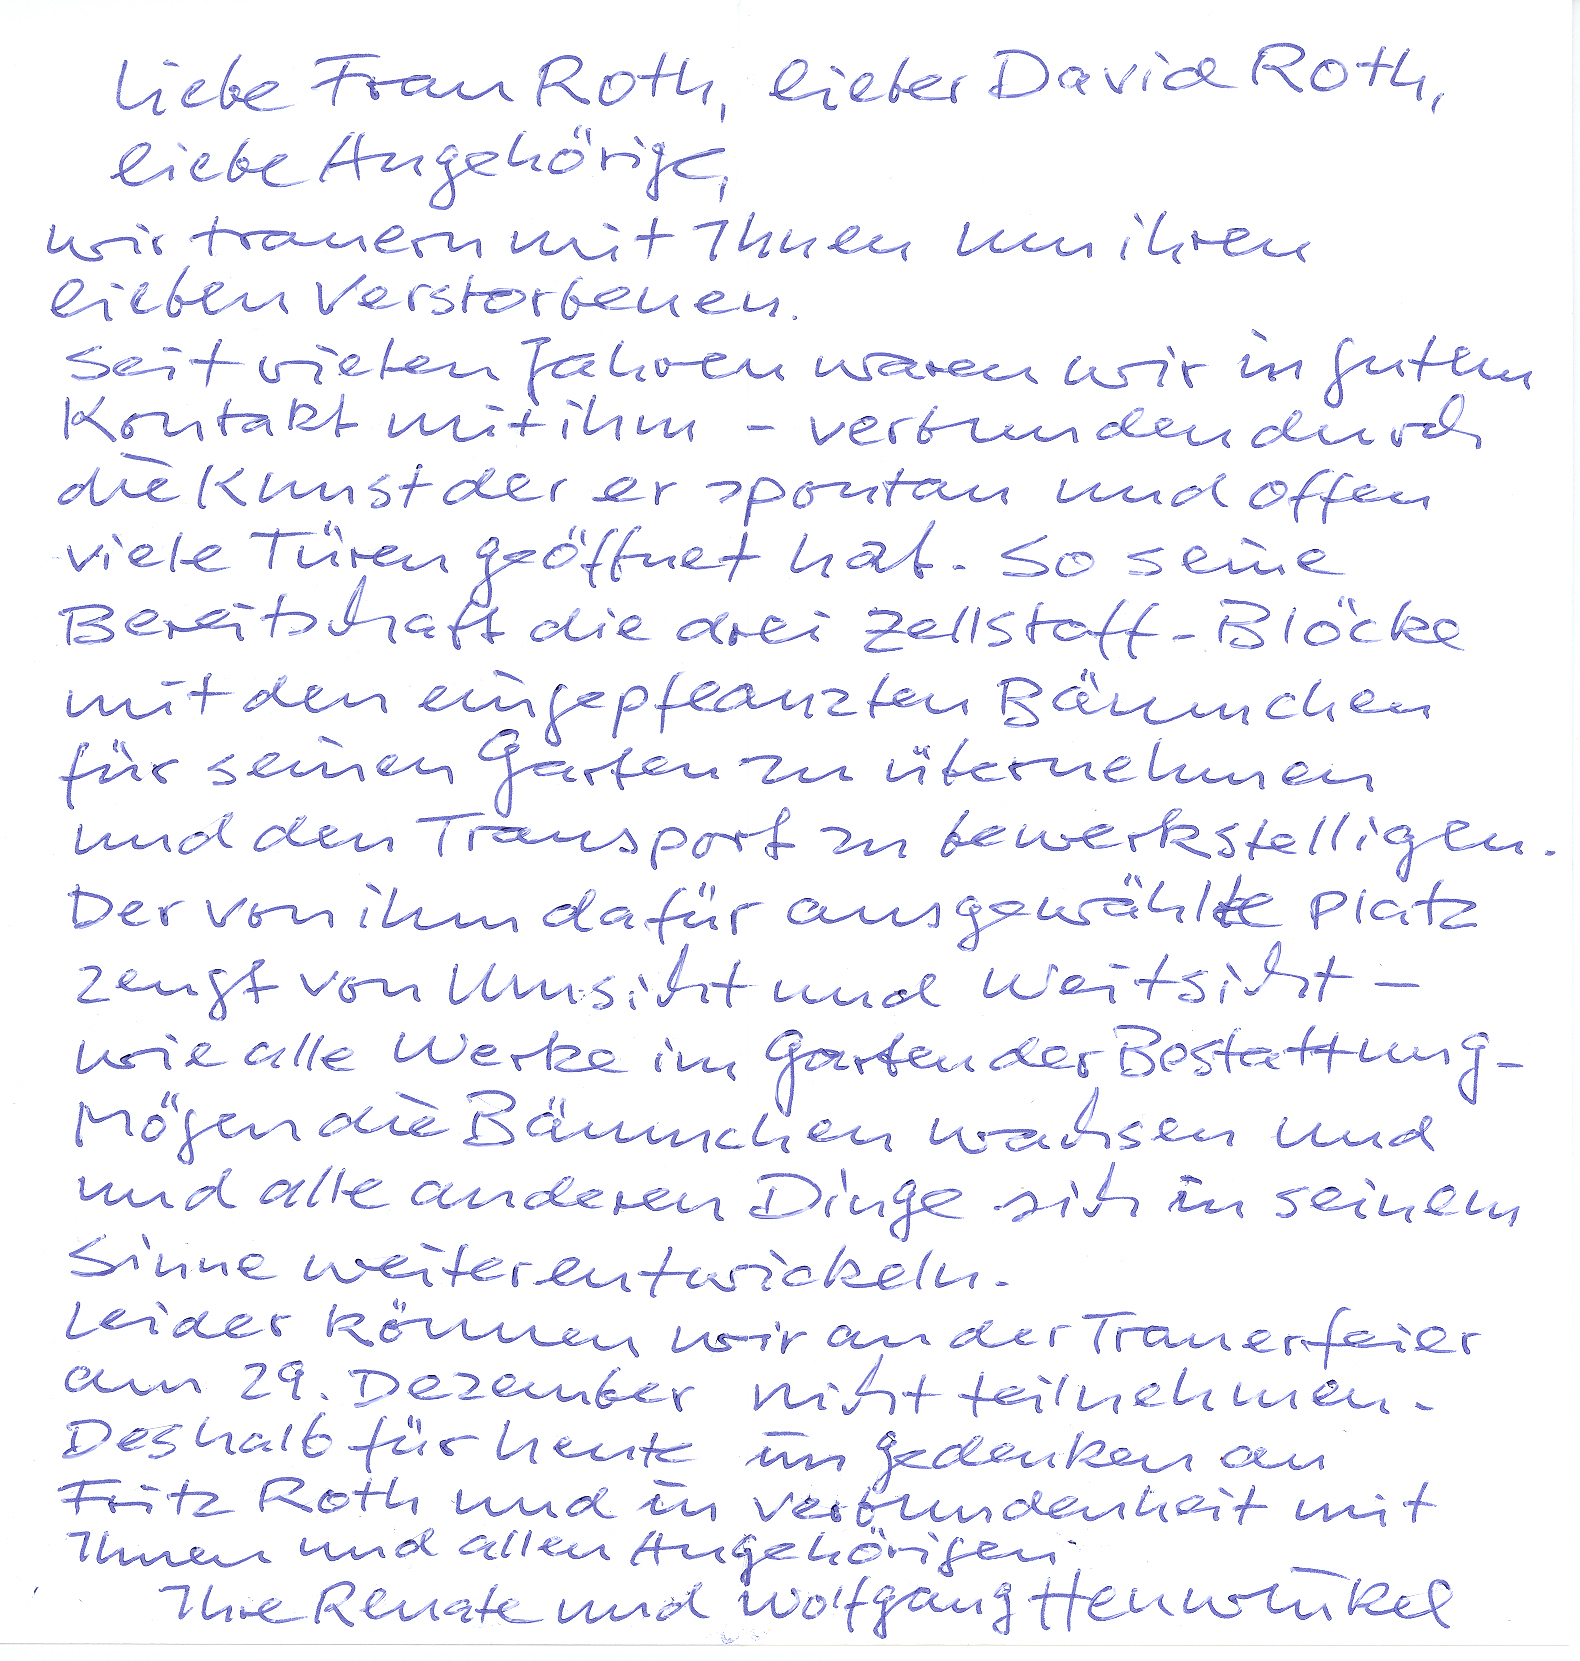 Liebe Frau Roth, lieber David Roth,
liebe Angehörige,
wir trauern mit Ihnen um ihren
lieben Verstorbenen.
Seit vielen Jahren waren wir in gutem
Kontakt mit ihm – verbunden durch
die Kunst der er spontan und offen
viele Türen geöffnet hat. So seine
Bereitschaft die drei Zellstoff-Blöcke
mit den eingepflanzten Bäumchen
für seinen Garten zu übernehmen
und den Transport zu bewerkstelligen.
Der von ihm dafür ausgewählte Platz
zeugt von Umsicht und Weitsicht –
wie alle Werke im Garten der Bestattung –
Mögen die Bäumchen wachsen und
und alle anderen Dinge sich in seinem
Sinne weiterentwickeln.
Leider können wir an der Trauerfeier
am 29. Dezember nicht teilnehmen.
Deshalb für heute im Gedenken an
Fritz Roth und in Verbundenheit mit
Ihnen und allen Angehörigen.
Ihre Renate und Wolfgang Henwinkel